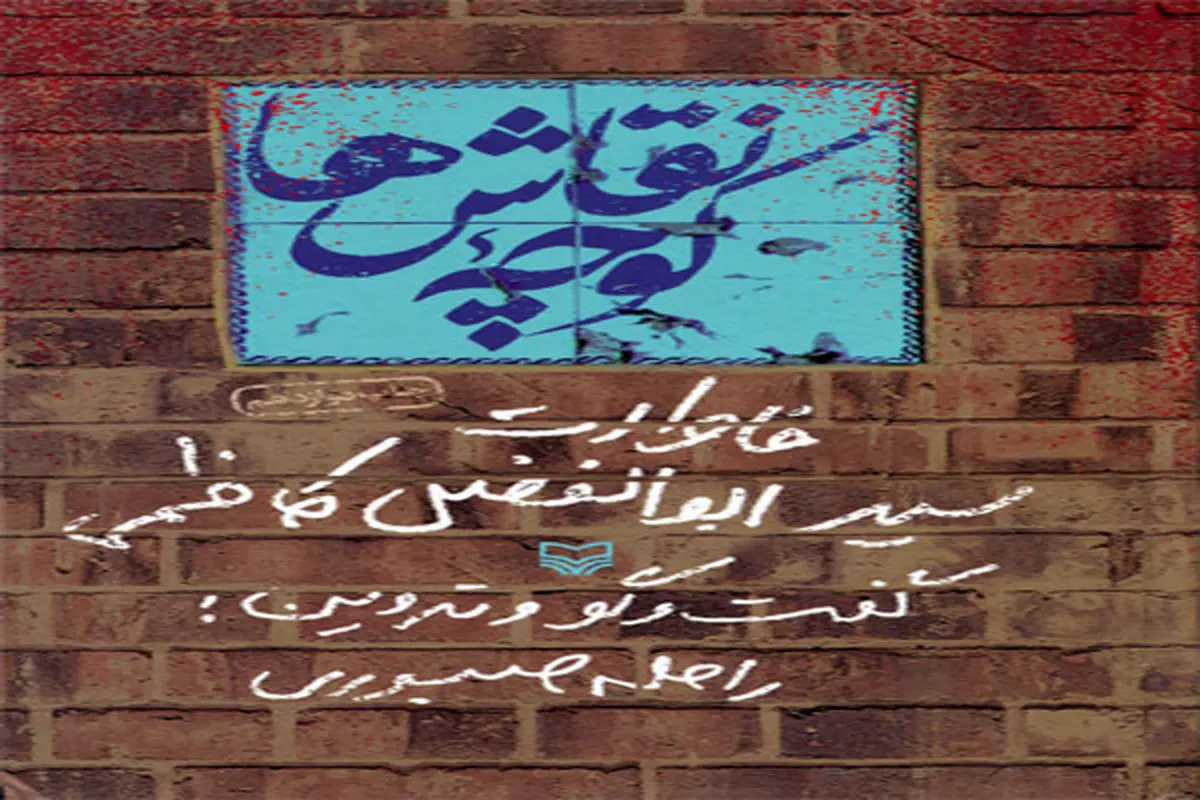 کوچه نقاش‌ها
چاپ دوازدهم
خاطرات
سید ابوالفضل کاظمی
گفت وگو و تدوین:
راحله صبوری